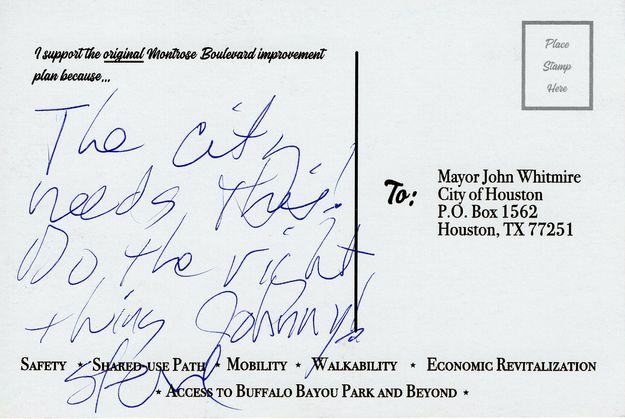 I support the original Montrose Boulevard improvement
plan because...
The city
needs this!
Do the right
thing Johnny!
Place
Stamp
Here
To:
Mayor John Whitmire
City of Houston
P.O. Box 1562
Houston, TX 77251
SAFETY ⋆ SHARED-USE PATH ⋆ MOBILITY ⋆ WALKABILITY ⋆ ECONOMIC REVITALIZATION
⋆ ACCESS TO BUFFALO BAYOU PARK AND BEYOND ⋆